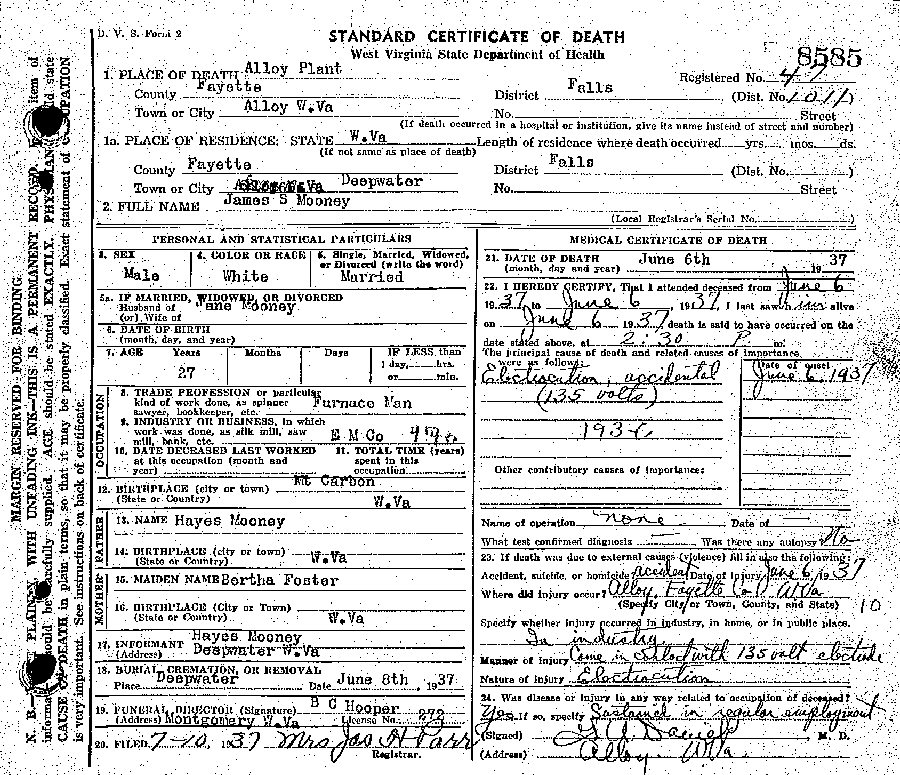 D. V. S. Form 2
STANDARD CERTIFICATE OF DEATH
West Virginia State Department of Health
8585
1. PLACE OF DEATH Alloy Plant
Registered No. 47
County Fayette District Falls (Dist. No. 1011)
Town or City Alloy W.Va No. Street
(If death occurred in a hospital or institution, give its name instead of street and number)
1a. PLACE OF RESIDENCE: STATE W.Va Length of residence where death occurred yrs. mos. ds.
(If not same as place of death)
County Fayette District Falls (Dist. No. )
Town or City Deepwater No. Street
2. FULL NAME James S Mooney
(Local Registrar's Serial No.
PERSONAL AND STATISTICAL PARTICULARS
3. SEX 4. COLOR OR RACE 5. Single, Married, Widowed, or Divorced (write the word)
Male White Married
5a. IF MARRIED, WIDOWED, OR DIVORCED
Husband of Jane Mooney
(or) Wife of
6. DATE OF BIRTH
(month, day, and year)
7. AGE Years Months Days IF LESS than
1 day, hrs.
27 or min.
OCCUPATION
8. TRADE PROFESSION or particular
kind of work done, as spinner Furnace Man
sawyer, bookkeeper, etc.
9. INDUSTRY OR BUSINESS, in which
work was done, as silk mill, saw
mill, bank, etc. E M Co
10. DATE DECEASED LAST WORKED 11. TOTAL TIME (years)
at this occupation (month and spent in this
year) occupation
12. BIRTHPLACE (city or town) Mt Carbon
(State or Country) W.Va
FATHER
13. NAME Hayes Mooney
14. BIRTHPLACE (city or town)
(State or Country) W.Va
MOTHER
15. MAIDEN NAME Bertha Foster
16. BIRTHPLACE (City or Town)
(State or Country) W.Va
17. INFORMANT Hayes Mooney
(Address) Deepwater W.Va
18. BURIAL, CREMATION, OR REMOVAL
Place Deepwater Date June 8th, 1937
19. FUNERAL DIRECTOR (Signature) B C Hooper
(Address) Montgomery W.Va License No. 272
20. FILED 7-10, 1937 Mrs Jas H Parr
Registrar.
MEDICAL CERTIFICATE OF DEATH
21. DATE OF DEATH June 6th 37
(month, day and year) 19
22. I HEREBY CERTIFY, That I attended deceased from June 6
1937, to June 6, 1937, I last saw him alive
on June 6, 1937, death is said to have occurred on the
date stated above, at 2:30 P m.
The principal cause of death and related causes of importance
were as follow:
Date of onset
Electrocution, accidental June 6, 1937
(135 volts)
193
Other contributory causes of importance:
Name of operation none Date of
What test confirmed diagnosis Was there any autopsy No
23. If death was due to external causes (violence) fill in also the following:
Accident, suicide, or homicide accident Date of Injury June 6, 1937
Where did injury occur? Alloy, Fayette Co. W Va
(Specify City or Town, County, and State) 10
Specify whether injury occurred in industry, in home, or in public place.
In industry
Manner of Injury Came in contact with 135 volt electrode
Nature of Injury Electrocution
24. Was disease or injury in any way related to occupation of deceased?
Yes If so, specify Sustained in regular employment
(Signed) M. D.
(Address) Alloy W Va
MARGIN RESERVED FOR BINDING.
PLAINLY, WITH UNFADING INK—THIS IS A PERMANENT RECORD. item of
N. B. should be carefully supplied. AGE should be stated EXACTLY. state
CAUSE OF DEATH in plain terms, so that it may be properly classified. Exact statement of OCCUPATION
is very important. See instructions on back of certificate.